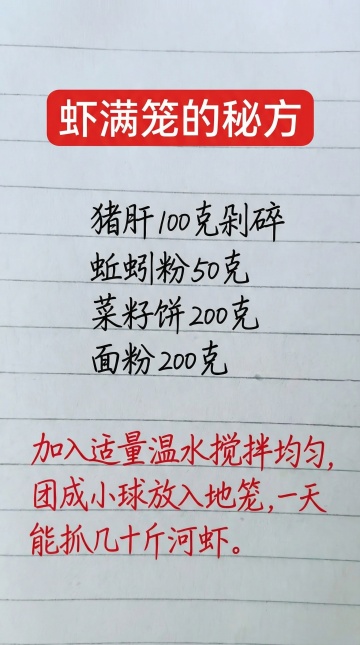 虾满笼的秘方
猪肝100克剁碎
蚯蚓粉50克
菜籽饼200克
面粉200克
加入适量温水搅拌均匀,
团成小球放入地笼,一天
能抓几十斤河虾。